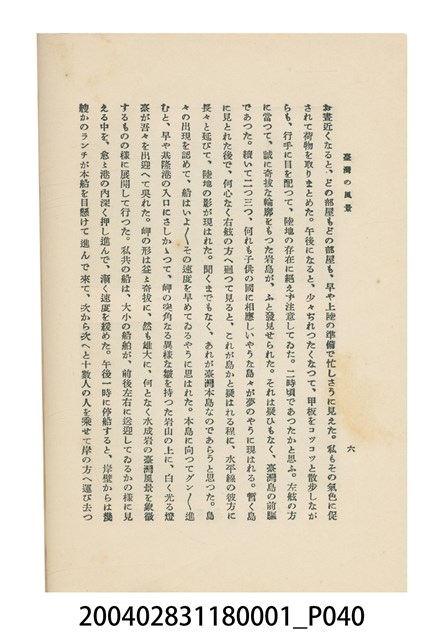 臺灣の風景
六
お晝近くなると、どの部屋もどの部屋も、早や上陸の準備で忙しさうに見えた。私もその氣色に促
されて荷物を取りまとめた。午後になると、少々ぢれつたくなつて、甲板をコツコツと散歩しなが
らも、行手に目を配つて、陸地の存在に絕えず注意してゐた。二時頃であつたかと思ふ。左舷の方
に當つて、誠に奇拔な輪廓をもつた岩島が、ふと發見せられた。それは疑ひもなく、臺灣島の前驅
であつた。續いて二つ三つ、何れも子供の國に相應しいやうな島々が夢のやうに現はれる。暫く島
に見とれた後で、何心なく右舷の方へ廻つて見ると、これが島かと疑はれる程に、水平線の彼方に
長々と延びて、陸地の影が現はれた。聞くまでもなく、あれが臺灣本島なのであらうと思つた。島
々の出現を認めて、船はいよ〱その速度を早めてゐるやうに思はれた。本島に向つてグン〱進
むと、早や基隆港の入口にさしかゝつて、岬の突角なる異樣な皺を持つた岩山の上に、白く光る燈
臺が吾々を出迎へて吳れた。岬の形は益々奇拔に、然も雄大に、何となく水成岩の臺灣風景を象徵
するものの樣に展開して行つた。私共の船は、大小の船舶が、前後左右に送迎してゐるかの樣に見
える中を、愈々港の內深く押し進んで、漸く速度を緩めた。午後一時に停船すると、岸壁からは幾
艘かのランチが本船を目懸けて進んで來て、次から次へと十數人の人を乘せて岸の方へ運び去つ
200402831180001_P040